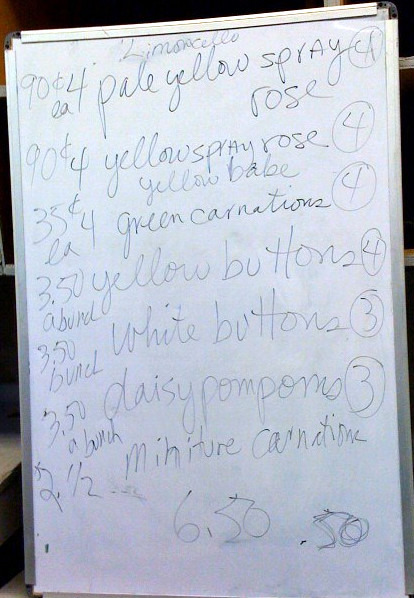 Limoncello
90¢ ea 4 pale yellow spray rose ④
90¢ 4 yellow spray rose ④
yellow babe
35¢ ea 4 green carnations ④
3.50 a bunch yellow buttons ④
3.50 bunch white buttons ③
3.50 a bunch daisy pompoms ③
2.1/2 miniture carnations
6.50 .50